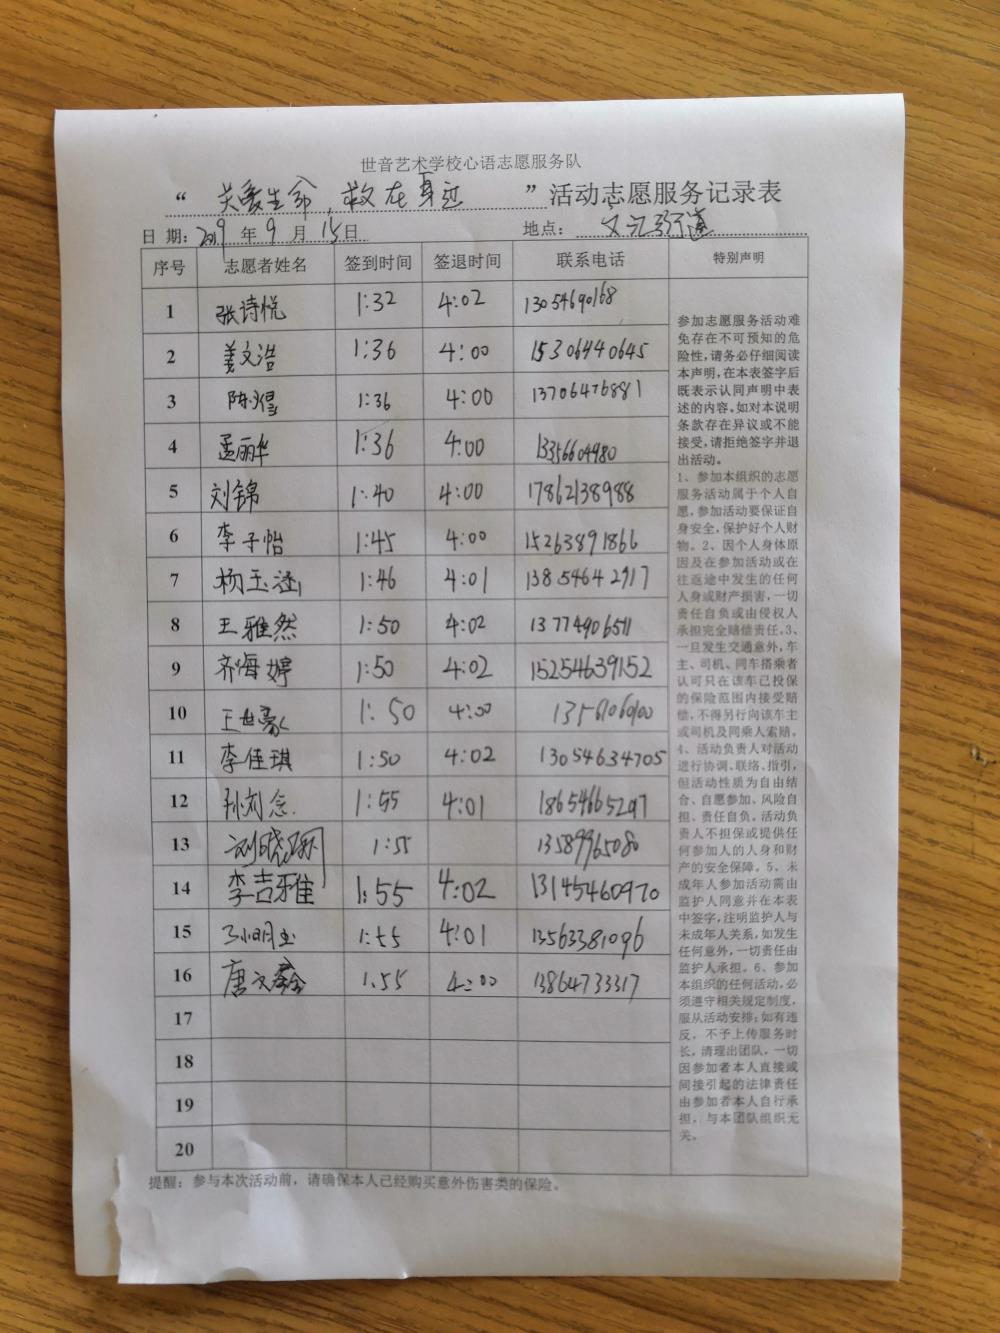 世音艺术学校心语志愿服务队
“ 关爱生命,救在身边 ”活动志愿服务记录表
日 期: 2019 年 9 月 15 日 地点: 文汇街道
序号 志愿者姓名 签到时间 签退时间 联系电话 特别声明
1 张诗悦 1:32 4:02 13054690168
2 姜文浩 1:36 4:00 15306440645
3 陈煜 1:36 4:00 13706476881
4 孟丽华 1:36 4:00 13356604980
5 刘锦 1:40 4:00 17862138988
6 李子怡 1:45 4:00 15263891866
7 杨玉涵 1:46 4:01 13854642917
8 王雅然 1:50 4:02 13774906511
9 齐海婷 1:50 4:02 15254639152
10 王世豪 1:50 4:00
11 李佳琪 1:50 4:02 13054634705
12 孙刘念 1:55 4:01 18654665297
13 1:55 13589965080
14 李吉雅 1:55 4:02 13145460970
15 孙明玉 1:55 4:01 13563381096
16 唐文鑫 1.55 4:00 13864733317
17
18
19
20
参加志愿服务活动难
免存在不可预知的危
险性,请务必仔细阅读
本声明,在本表签字后
既表示认同声明中表
述的内容。如对本说明
条款存在异议或不能
接受,请拒绝签字并退
出活动。
1、参加本组织的志愿
服务活动属于个人自
愿,参加活动要保证自
身安全,保护好个人财
物。2、因个人身体原
因及在参加活动或在
往返途中发生的任何
人身或财产损害,一切
责任自负或由侵权人
承担完全赔偿责任。3、
一旦发生交通意外,车
主、司机、同车搭乘者
认可只在该车已投保
的保险范围内接受赔
偿,不得另行向该车主
或司机及同乘人索赔。
4、活动负责人对活动
进行协调、联络、指引,
但活动性质为自由结
合、自愿参加、风险自
担、责任自负。活动负
责人不担保或提供任
何参加人的人身和财
产的安全保障。5、未
成年人参加活动需由
监护人同意并在本表
中签字,注明监护人与
未成年人关系,如发生
任何意外,一切责任由
监护人承担。6、参加
本组织的任何活动,必
须遵守相关规定制度,
服从活动安排;如有违
反,不予上传服务时
长,清理出团队,一切
因参加者本人直接或
间接引起的法律责任
由参加者本人自行承
担,与本团队组织无
关。
提醒:参与本次活动前,请确保本人已经购买意外伤害类的保险。